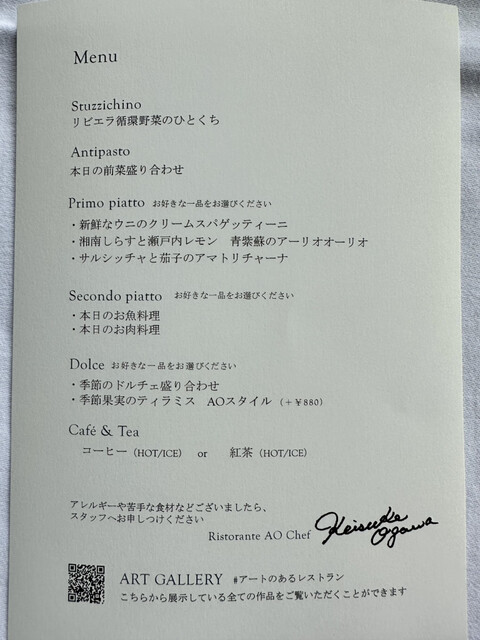 Menu
Stuzzichino
リビエラ循環野菜のひとくち
Antipasto
本日の前菜盛り合わせ
Primo piatto お好きな一品をお選びください
・新鮮なウニのクリームスパゲッティーニ
・湘南しらすと瀬戸内レモン 青紫蘇のアーリオオーリオ
・サルシッチャと茄子のアマトリチャーナ
Secondo piatto お好きな一品をお選びください
・本日のお魚料理
・本日のお肉料理
Dolce お好きな一品をお選びください
・季節のドルチェ盛り合わせ
・季節果実のティラミス AOスタイル (+¥880)
Café & Tea
コーヒー (HOT/ICE) or 紅茶 (HOT/ICE)
アレルギーや苦手な食材などございましたら、
スタッフへお申しつけください
Ristorante AO Chef Keisuke Ogawa
ART GALLERY #アートのあるレストラン
こちらから展示している全ての作品をご覧いただくことができます